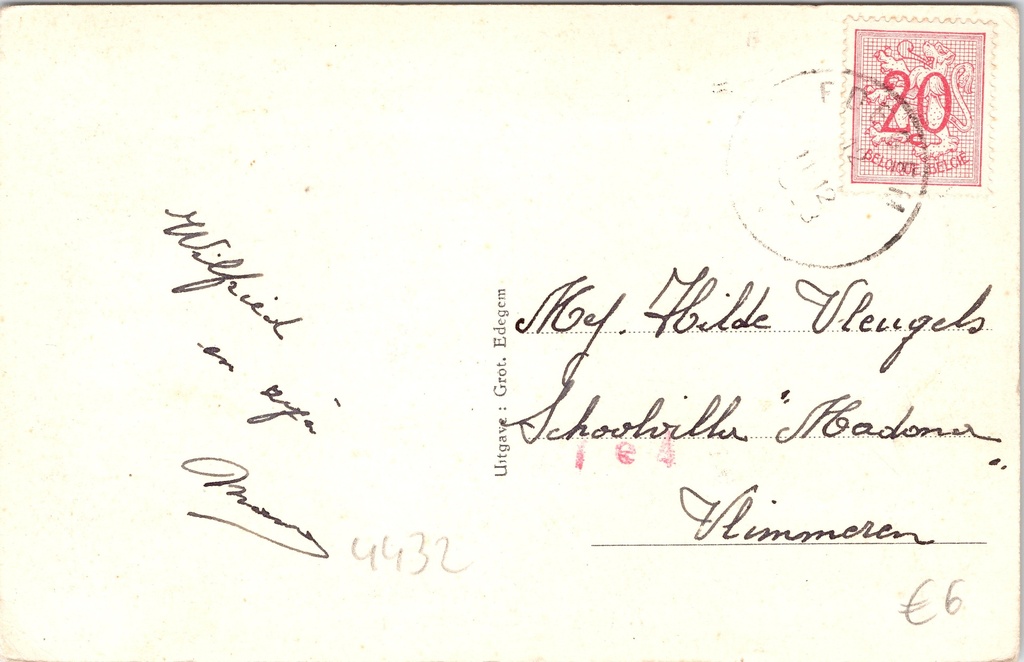 20
BELGIQUE BELGIË
12
Wilfried
en zijn
Mama
Uitgave: Grot. Edegem
Mej. Hilde Vleugels
Schoolvilla "Madona"
Vlimmeren
4432
€6